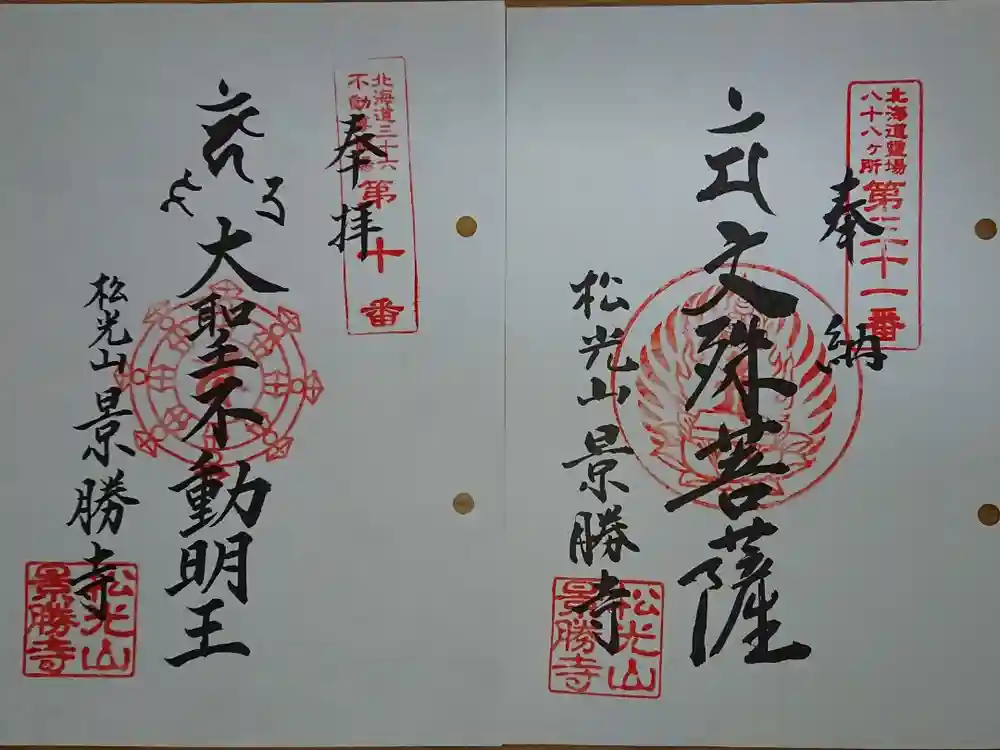 北海道三十六
不動尊霊場
第十番
奉拝
大聖不動明王
松光山景勝寺
松光山
景勝寺
北海道霊場
八十八ヶ所
第三十一番
奉納
文殊菩薩
松光山景勝寺
松光山
景勝寺